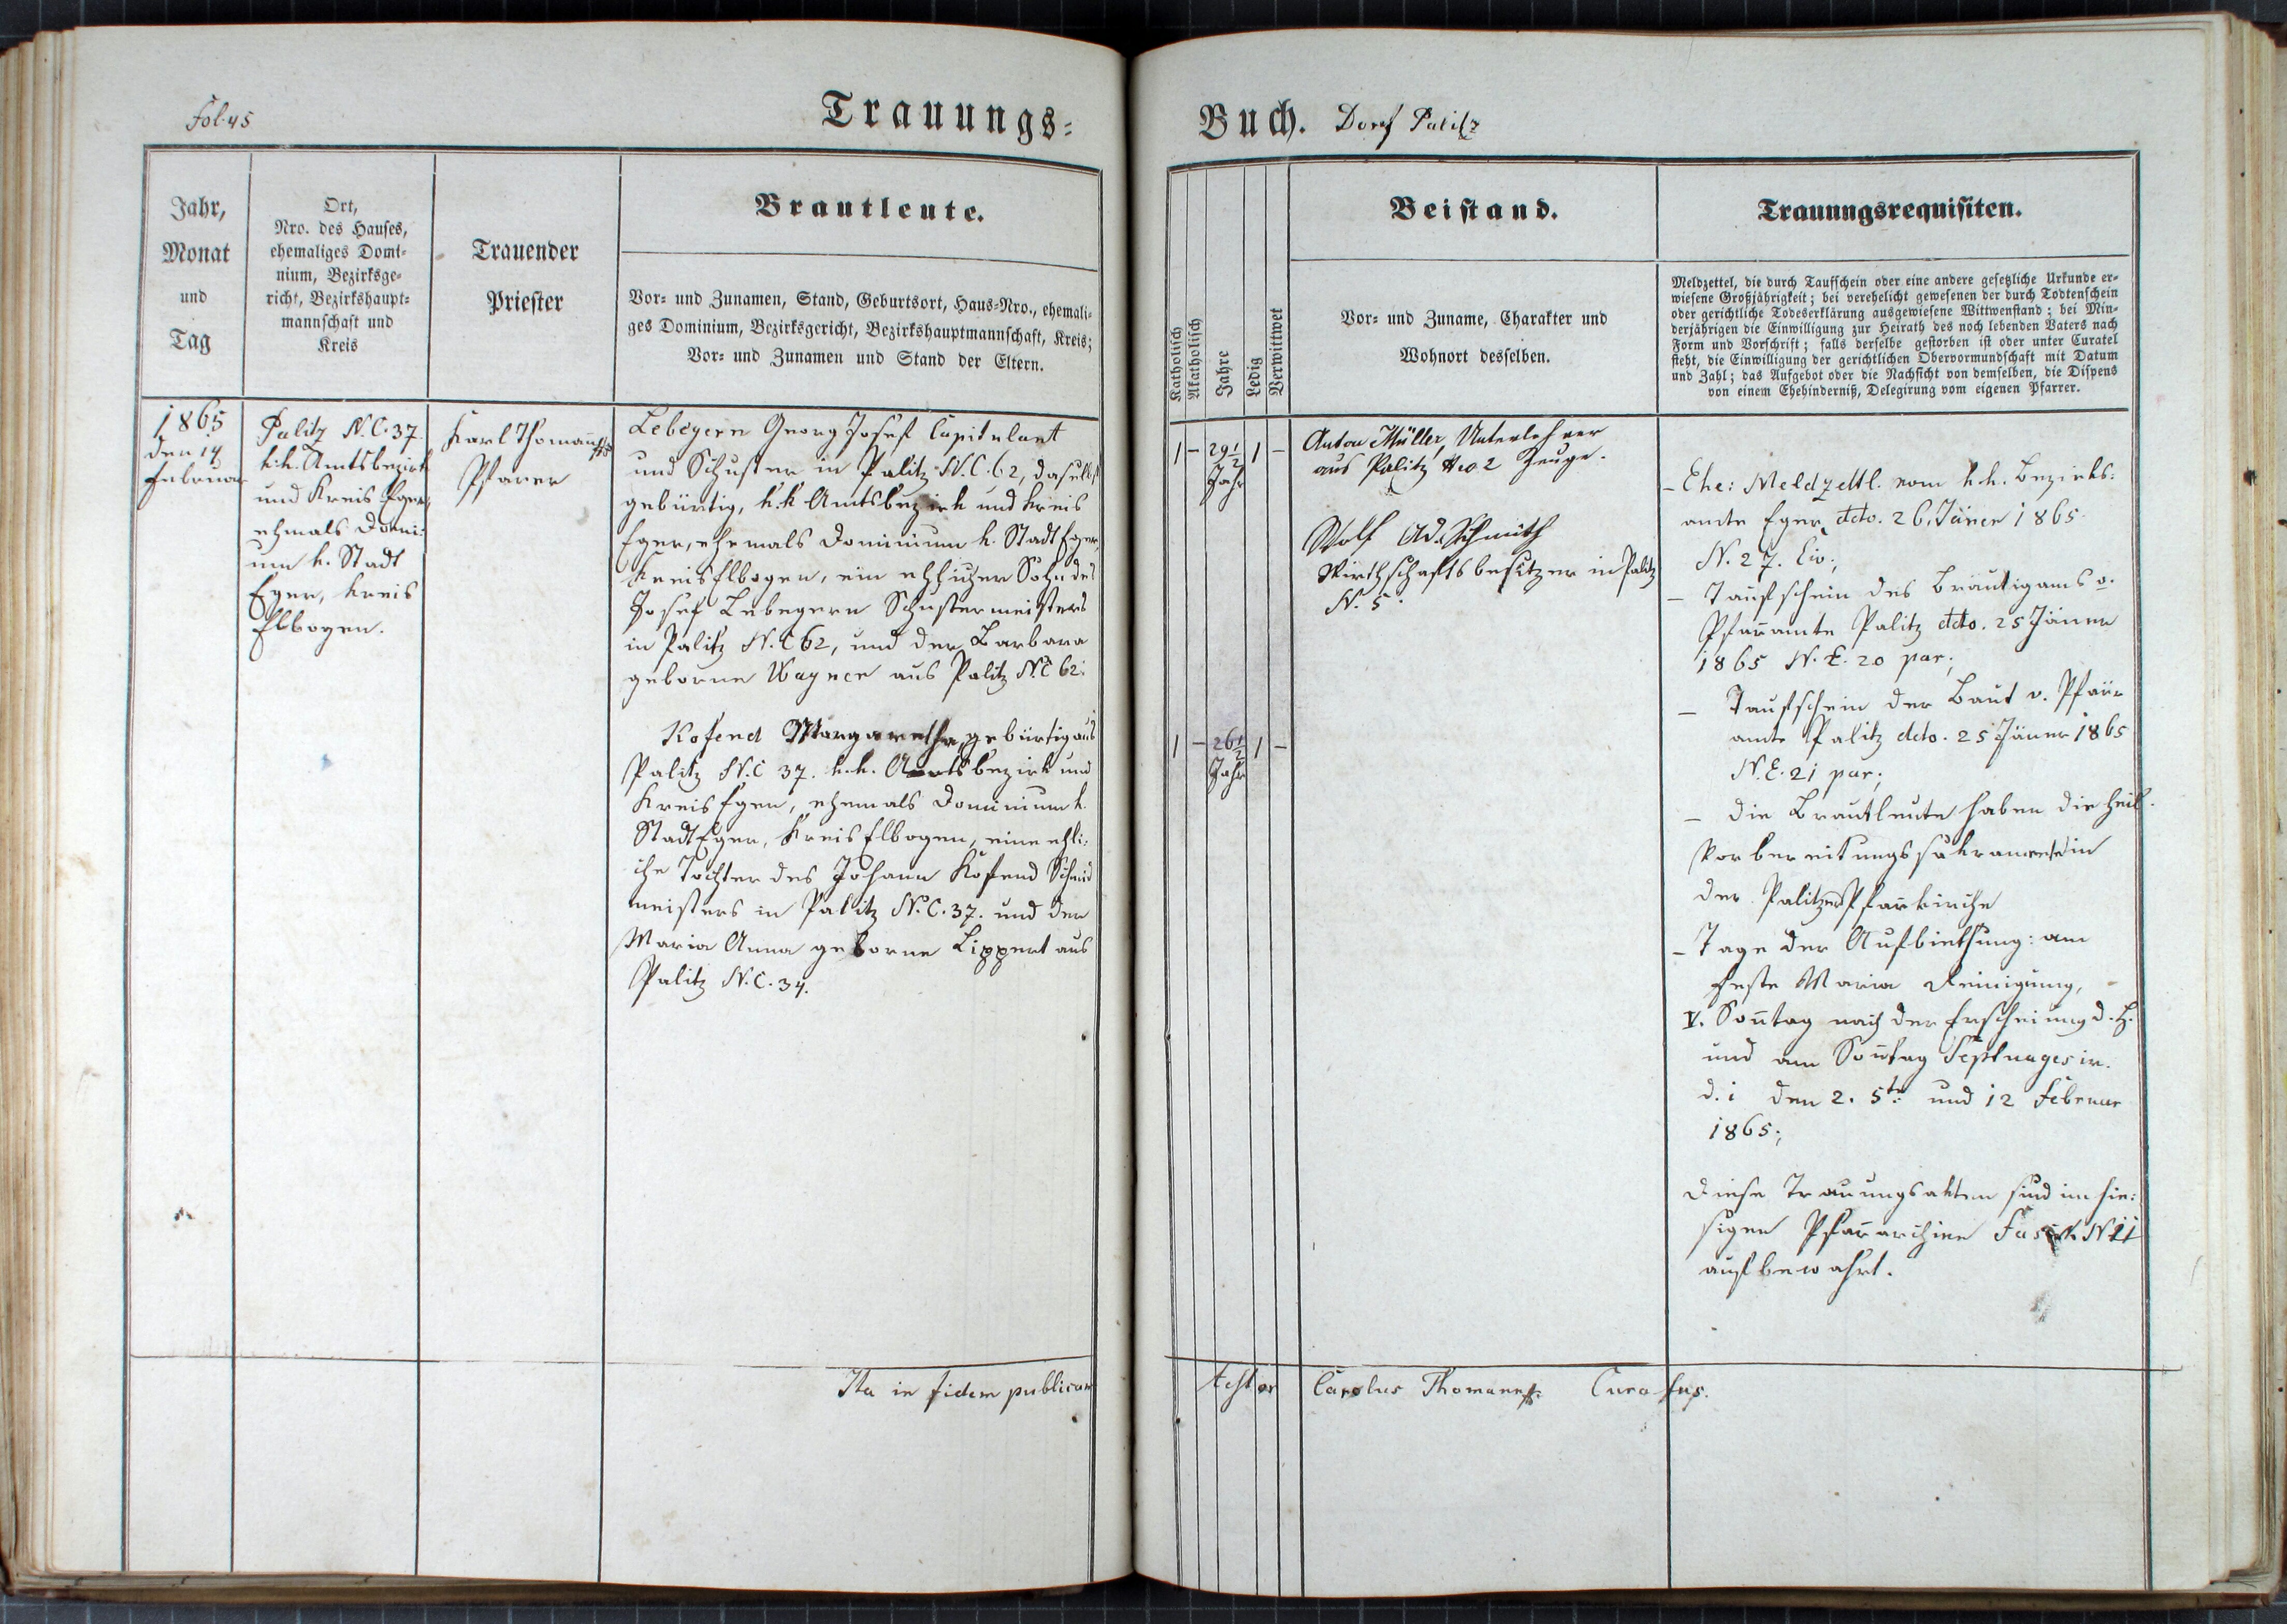 Fol. 45
Trauungs-
Jahr,
Monat
und
Tag
Ort,
Nro. des Hauses,
ehemaliges Domi-
nium, Bezirksge-
richt, Bezirkshaupt-
mannschaft und
Kreis
Trauender
Priester
Brautleute.
Vor- und Zunamen, Stand, Geburtsort, Haus-Nro., ehemali-
ges Dominium, Bezirksgericht, Bezirkshauptmannschaft, Kreis;
Vor- und Zunamen und Stand der Eltern.
1865
den 14
Februar
Palitz N.C. 37.
k.k. Amtsbezirk
und Kreis Eger,
ehmals Domi-
um k. Stadt
Eger, Kreis
Elbogen.
Karl Thomann
Pfarer
Lebegern Georg Josef Capitulant
und Schuster in Palitz N.C. 62, daselbst
gebürtig, k.k. Amtsbezirk und Kreis
Eger, ehemals Dominium k. Stadt Eger,
Kreis Elbogen, ein ehlicher Sohn des
Josef Lebegern Schustermeisters
in Palitz N.C 62, und der Barbara
geborne Wagner aus Palitz N.C 62.
Kofend Margaretha, gebürtig aus
Palitz N.C 37. k.k. Amtsbezirk und
Kreis Eger, ehemals Dominium k.
Stadt Eger, Kreis Elbogen, eine ehli-
che Tochter des Johann Kofend Schmid
meisters in Palitz N.C. 37. und der
Maria Anna geborne Lippert aus
Palitz N.C. 34.
Ita in fidem publicam
Buch. Dorf Palitz
Katholisch
Akatholisch
Jahre
Ledig
Verwittwet
Beistand.
Vor- und Zuname, Charakter und
Wohnort desselben.
Trauungsrequisiten.
Meldzettel, die durch Taufschein oder eine andere gesetzliche Urkunde er-
wiesene Großjährigkeit; bei verehelicht gewesenen der durch Todtenschein
oder gerichtliche Todeserklärung ausgewiesene Wittwenstand; bei Min-
derjährigen die Einwilligung zur Heirath des noch lebenden Vaters nach
Form und Vorschrift; falls derselbe gestorben ist oder unter Curatel
steht, die Einwilligung der gerichtlichen Obervormundschaft mit Datum
und Zahl; das Aufgebot oder die Nachsicht von demselben, die Dispens
von einem Ehehinderniß, Delegirung vom eigenen Pfarrer.
1 – 29½ 1 –
Jahr
Anton Müller, Unterlehrer
aus Palitz Nro 2 Zeuge.
Wolf Ad. Schmith
Wirthschaftsbesitzer in Palitz
N. 5.
1 – 26½ 1 –
Jahr
– Ehe: Meldzettl. vom k.k. Bezirks-
amte Eger dcto. 26. Jäner 1865
N. 27. Civ.;
– Taufschein des Bräutigams v.
Pfaramte Palitz dcto. 25 Jäner
1865 N.E. 20 par;
– Taufschein der Baut v. Pfarr
amte Palitz dcto. 25 Jäner 1865
N.E. 21 par;
– die Brautleute haben die heil.
Vorbereitungssakramente in
der Palitzer Pfarkirche
– Tage der Aufbiethung: am
Feste Maria Reinigung,
V. Sontag nach der Erscheinung d. H.
und am Sontag Septuages in.
d. i den 2. 5te und 12 Februar
1865;
Diese Trauungsakten sind im hie-
sigen Pfararchive Fasik N 11
aufbewahrt.
testor Carolus Thomann Curatus.